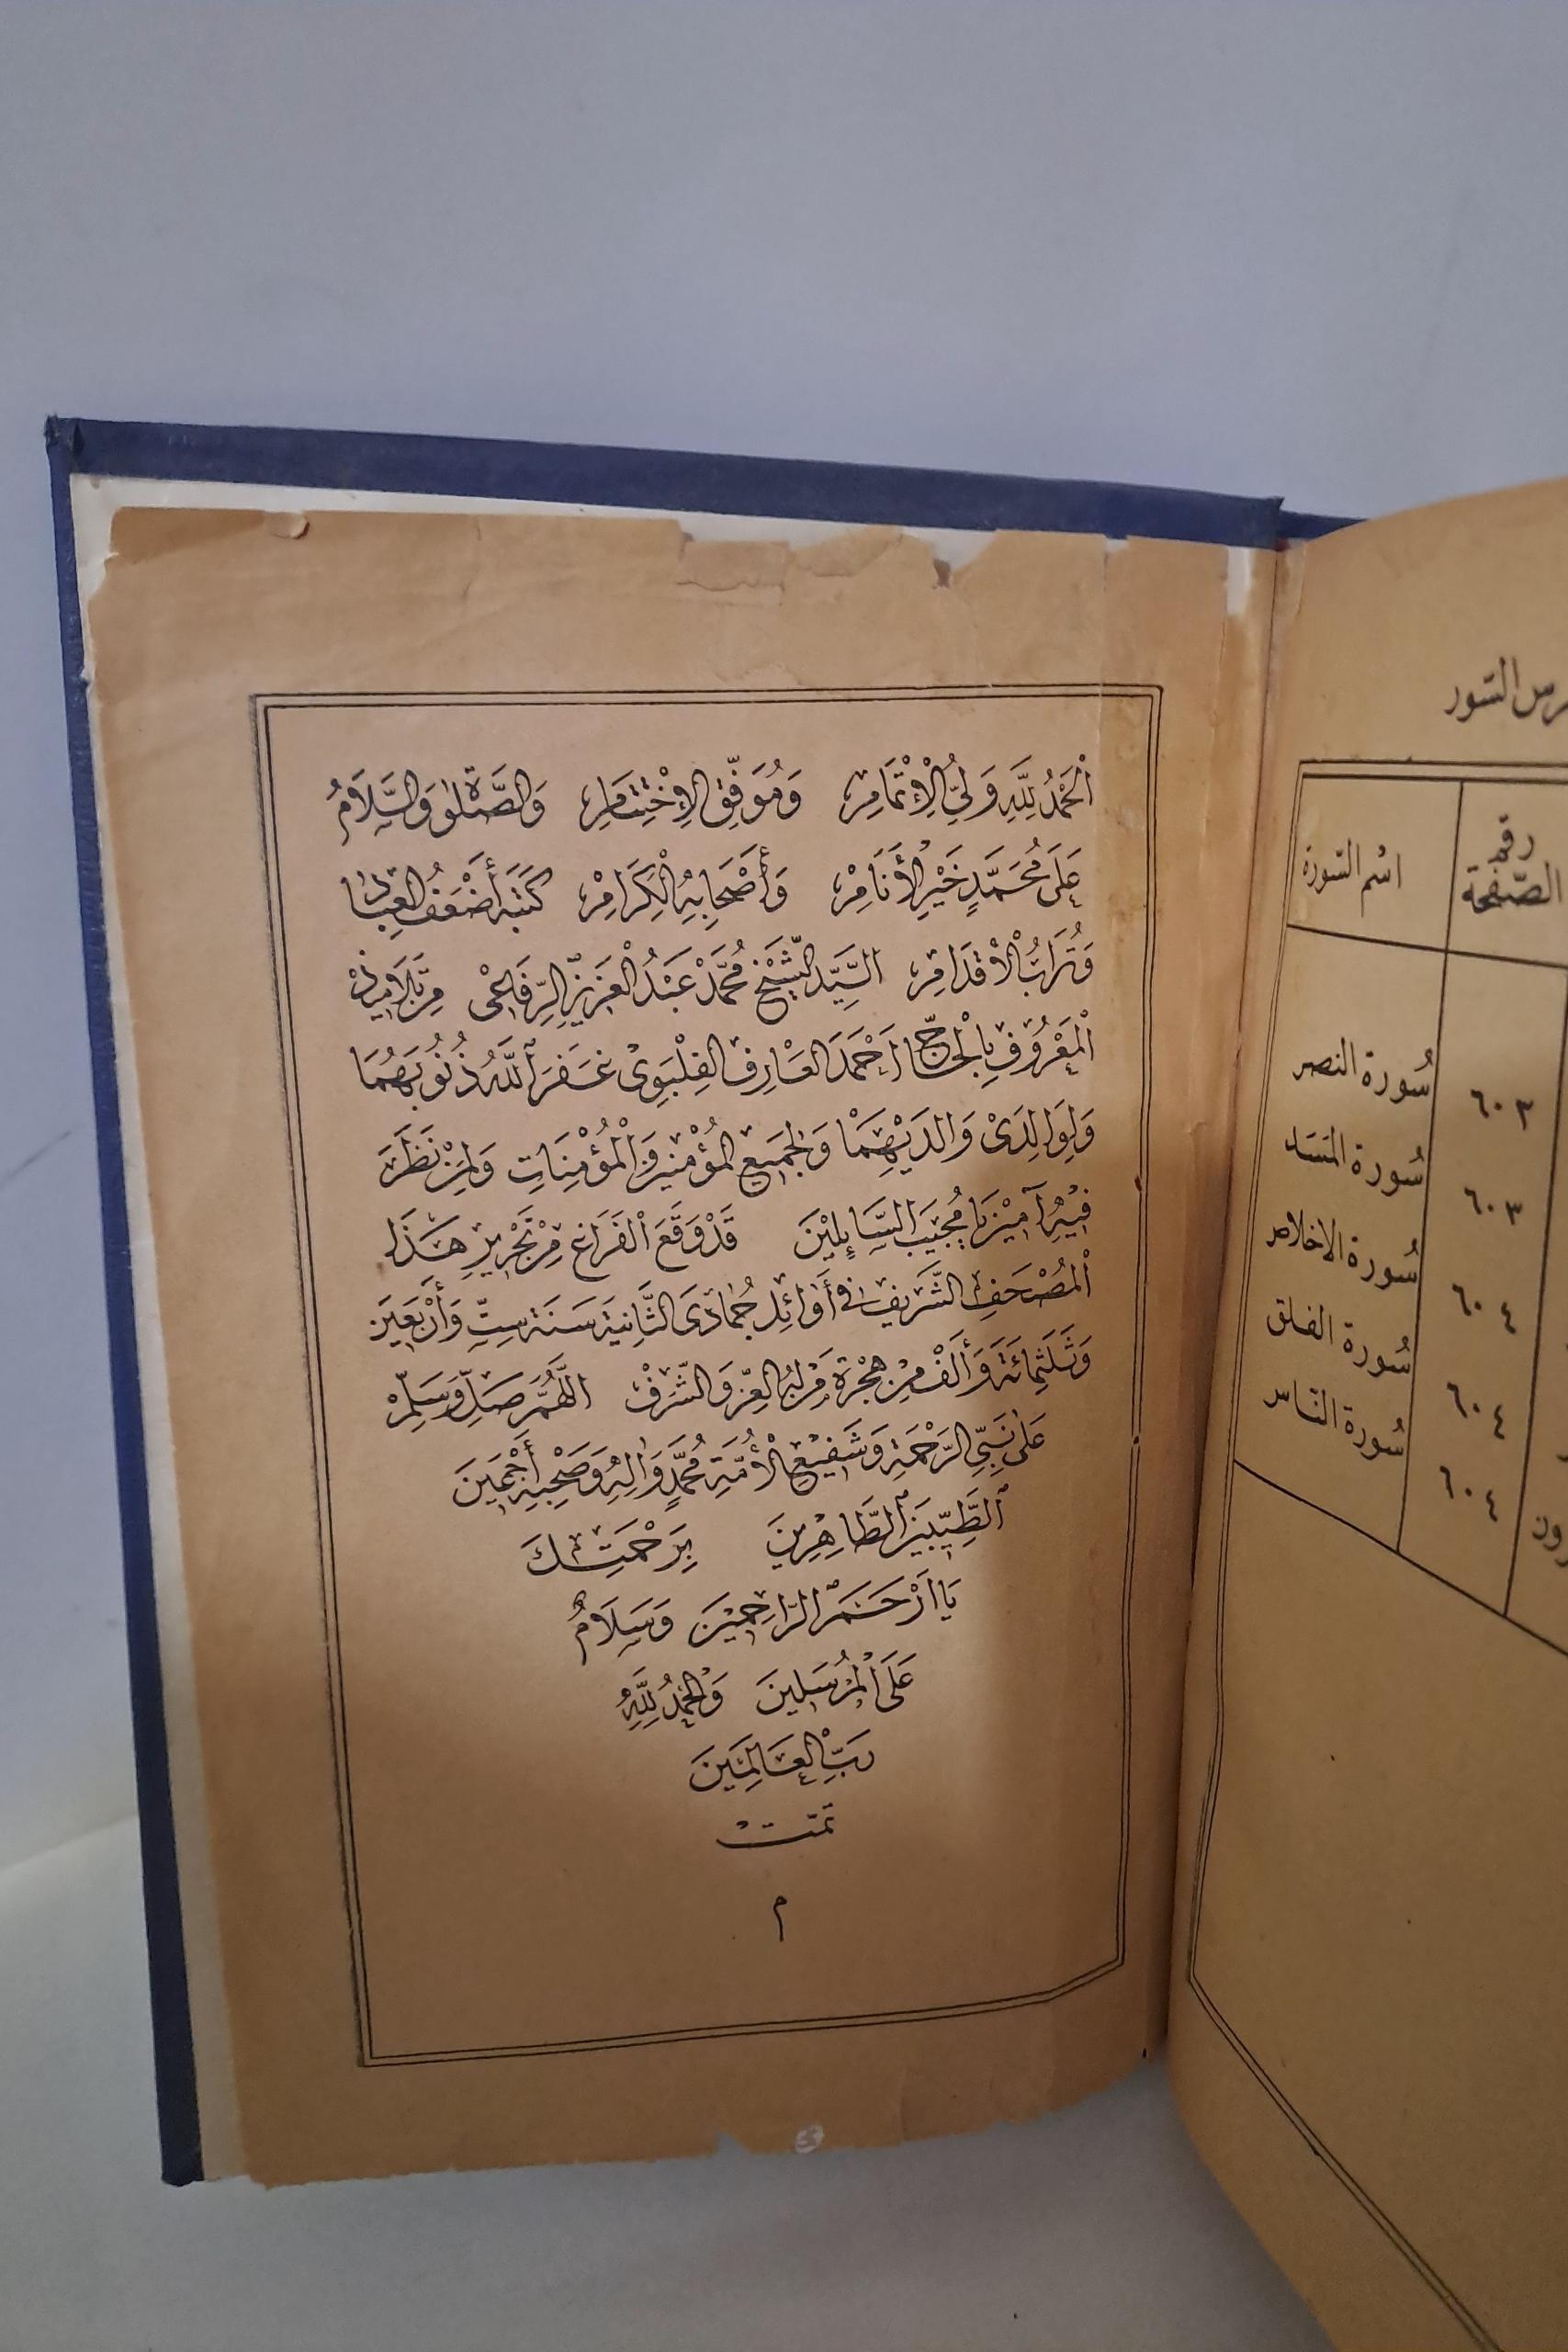 اَلْحَمْدُ لِلَّهِ وَلِيِّ الْاِتْمَامِ وَمُوَفِّقِ الْاِخْتِتَامِ وَالصَّلٰوةُ وَالسَّلَامُ
عَلَى مُحَمَّدٍ خَيْرِ الْأَنَامِ وَأَصْحَابِهِ الْكِرَامِ كَتَبَهُ أَضْعَفُ الْعِبَادِ
وَتُرَابُ الْاَقْدَامِ السَّيِّدُ الشَّيْخُ مُحَمَّدْ عَبْدُ الْعَزِيزِ الرِّفَاعِى مِنْ تَلَامِيذِ
الْمَعْرُوفِ بِالْحَاجِّ اَحْمَدَ الْعَارِفِ الْفِلْبَوِى غَفَرَ اللَّهُ ذُنُوبَهُمَا
وَلِوَالِدَىْ وَالِدَيْهِمَا وَلِجَمِيعِ الْمُؤْمِنِينَ وَالْمُؤْمِنَاتِ وَلِمَنْ نَظَرَ
فِيهِ آمِينَ يَا مُجِيبَ السَّائِلِينَ قَدْ وَقَعَ الْفَرَاغُ مِنْ تَحْرِيرِ هَذَا
الْمُصْحَفِ الشَّرِيفِ فِى أَوَائِلِ جُمَادَى الثَّانِيَةِ سَنَةَ سِتٍّ وَأَرْبَعِينَ
وَثَلَثِمِائَةَ وَأَلْفْ مِنْ هِجْرَةِ مَنْ لَهُ الْعِزُّ وَالشَّرَفْ اَللَّهُمَّ صَلِّ وَسَلِّمْ
عَلَى نَبِيِّ الرَّحْمَةِ وَشَفِيعِ الْأُمَّةِ مُحَمَّدٍ وَاٰلِهِ وَصَحْبِهِ أَجْمَعِينَ
الطَّيِّبِينَ الطَّاهِرِينَ بِرَحْمَتِكَ
يَا اَرْحَمَ الرَّاحِمِينَ وَسَلَامٌ
عَلَى الْمُرْسَلِينَ وَالْحَمْدُ لِلَّهِ
رَبِّ الْعَالَمِينَ
تمت
م
السّور
رقم الصّفحة اسْم السّورة
٦٠٣ سُورة النصر
٦٠٣ سُورة المَسَد
٦٠٤ سُورة الاخلاص
٦٠٤ سُورة الفلق
٦٠٤ سُورة النّاس